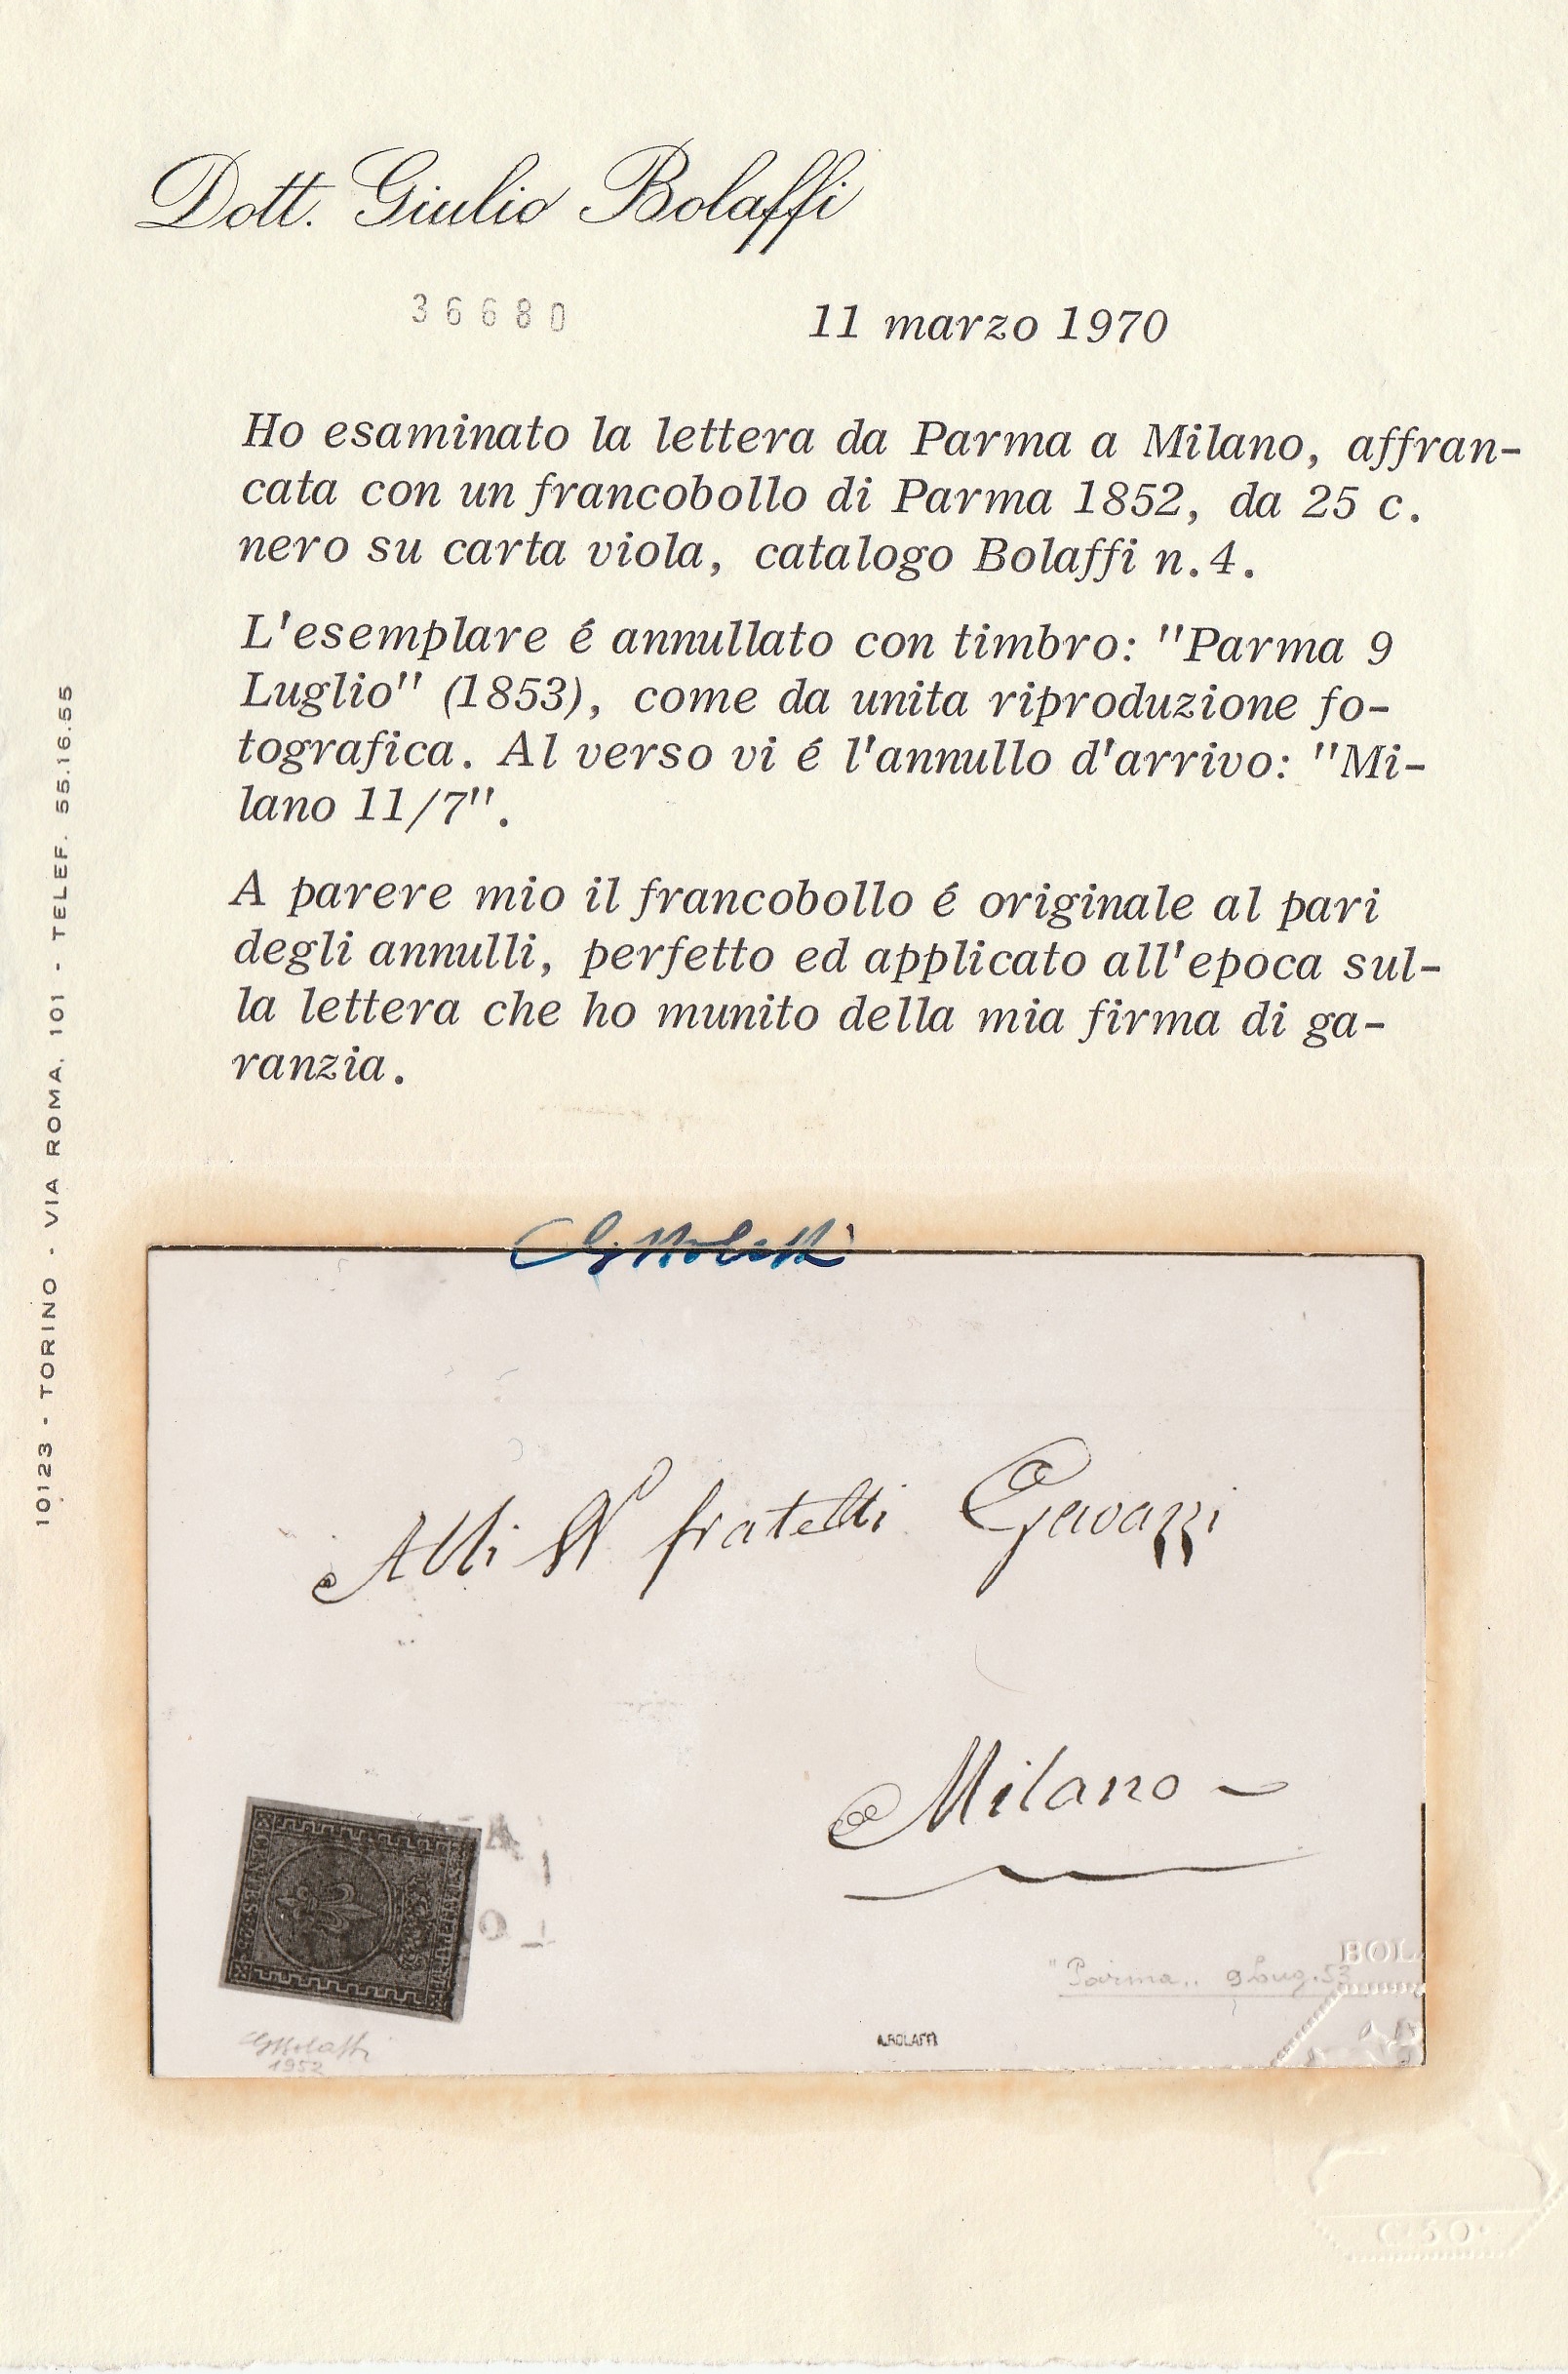 Dott. Giulio Bolaffi
36680
11 marzo 1970
Ho esaminato la lettera da Parma a Milano, affran-
cata con un francobollo di Parma 1852, da 25 c.
nero su carta viola, catalogo Bolaffi n.4.
L'esemplare é annullato con timbro: "Parma 9
Luglio" (1853), come da unita riproduzione fo-
tografica. Al verso vi é l'annullo d'arrivo: "Mi-
lano 11/7".
A parere mio il francobollo é originale al pari
degli annulli, perfetto ed applicato all'epoca sul-
la lettera che ho munito della mia firma di ga-
ranzia.
10123 - TORINO - VIA ROMA, 101 - TELEF. 55.16.55
GBolaffi
Alli fratelli Gavazzi
Milano
CENTES. 25
"Parma" 9 Lug. 53
BOL
A.BOLAFFI
GBolaffi
1952
C·50·